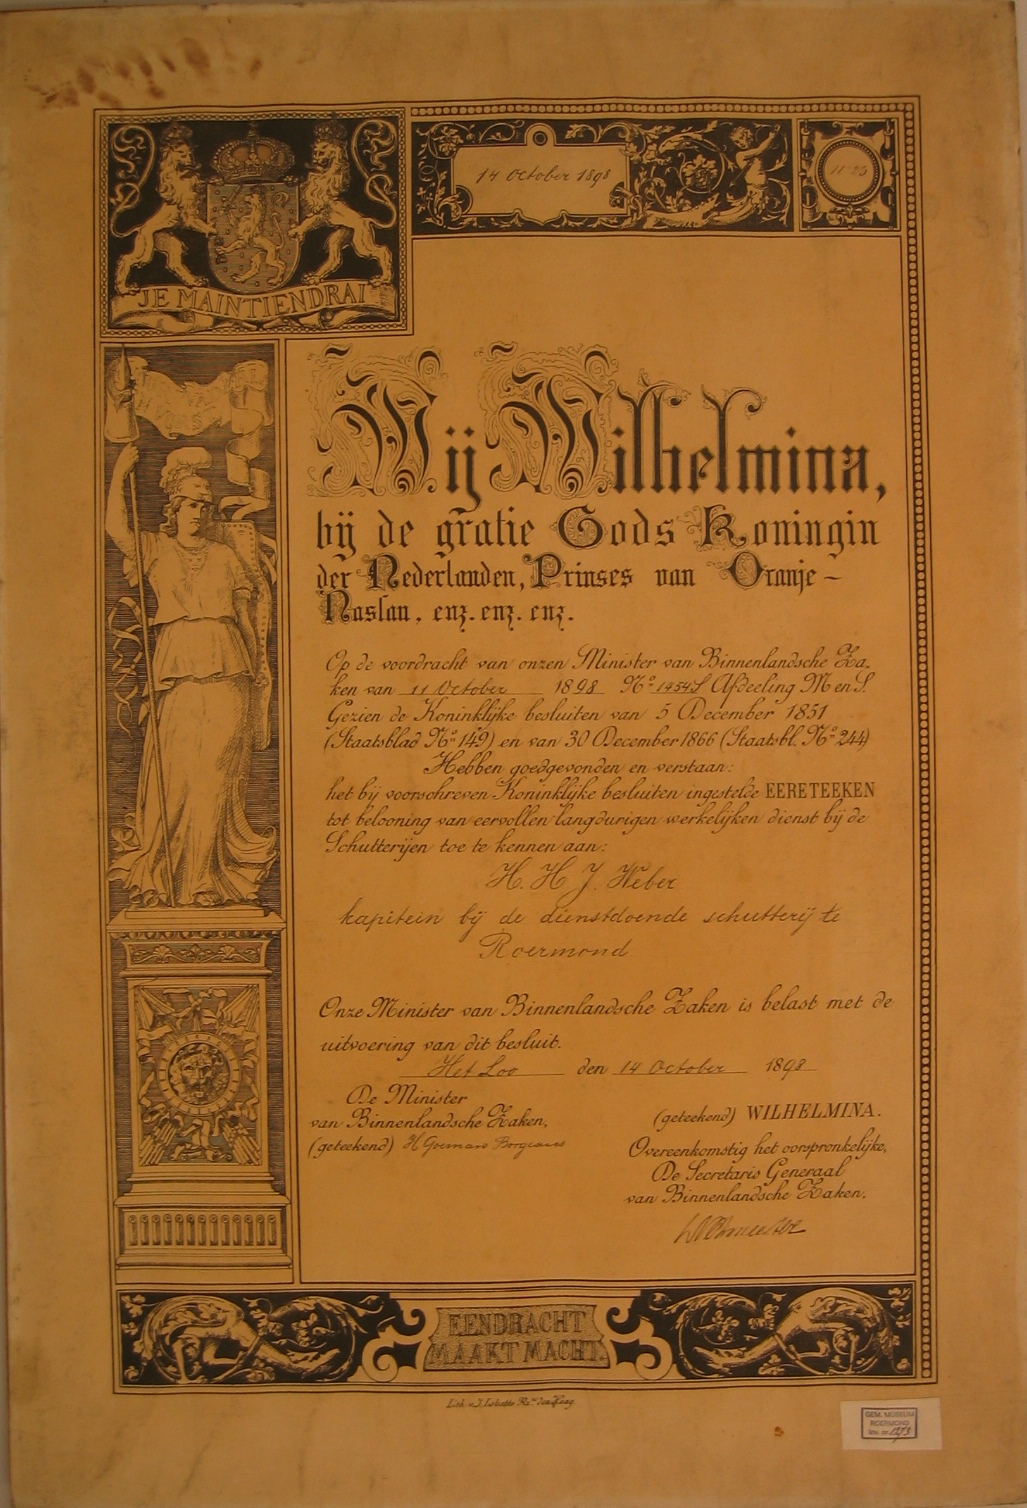 14 October 1898
No 25
JE MAINTIENDRAI
Wij Wilhelmina,
bij de gratie Gods Koningin
der Nederlanden, Prinses van Oranje-
Nassau, enz. enz. enz.
Op de voordracht van onzen Minister van Binnenlandsche Za-
ken van 11 October 1898 No 1454S Afdeeling M en S.
Gezien de Koninklijke besluiten van 5 December 1851
(Staatsblad No 149) en van 30 December 1866 (Staatsbl. No 244)
Hebben goedgevonden en verstaan:
het bij voorschreven Koninklijke besluiten ingestelde EERETEEKEN
tot belooning van eervollen langdurigen werkelijken dienst bij de
Schutterijen toe te kennen aan:
H. H. J. Weber
kapitein bij de dienstdoende schutterij te
Roermond
Onze Minister van Binnenlandsche Zaken is belast met de
uitvoering van dit besluit.
Het Loo den 14 October 1898
De Minister
van Binnenlandsche Zaken,
(geteekend) H Goeman Borgesius
(geteekend) WILHELMINA.
Overeenkomstig het oorspronkelijke,
De Secretaris Generaal
van Binnenlandsche Zaken.
EENDRACHT
MAAKT MACHT.
Lith. v. J. den Haag
GEM. MUSEUM
ROERMOND
inv. nr.